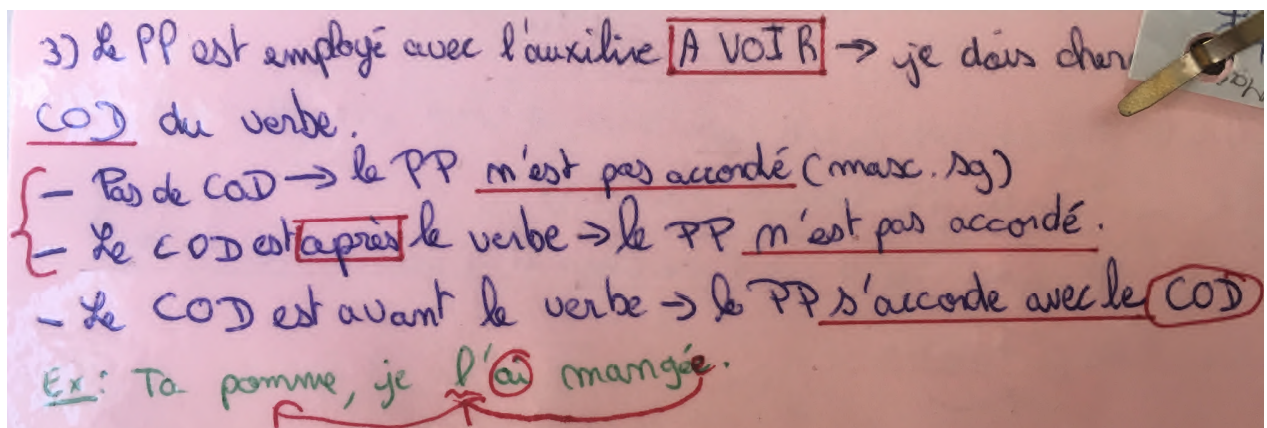 3) Le PP est employé avec l'auxilire AVOIR → je dois cher
COD du verbe.
- Pas de COD → le PP n'est pas accordé (masc. sg)
- Le COD est après le verbe → le PP n'est pas accordé.
- Le COD est avant le verbe → le PP s'accorde avec le COD
Ex: Ta pomme, je l'ai mangée.